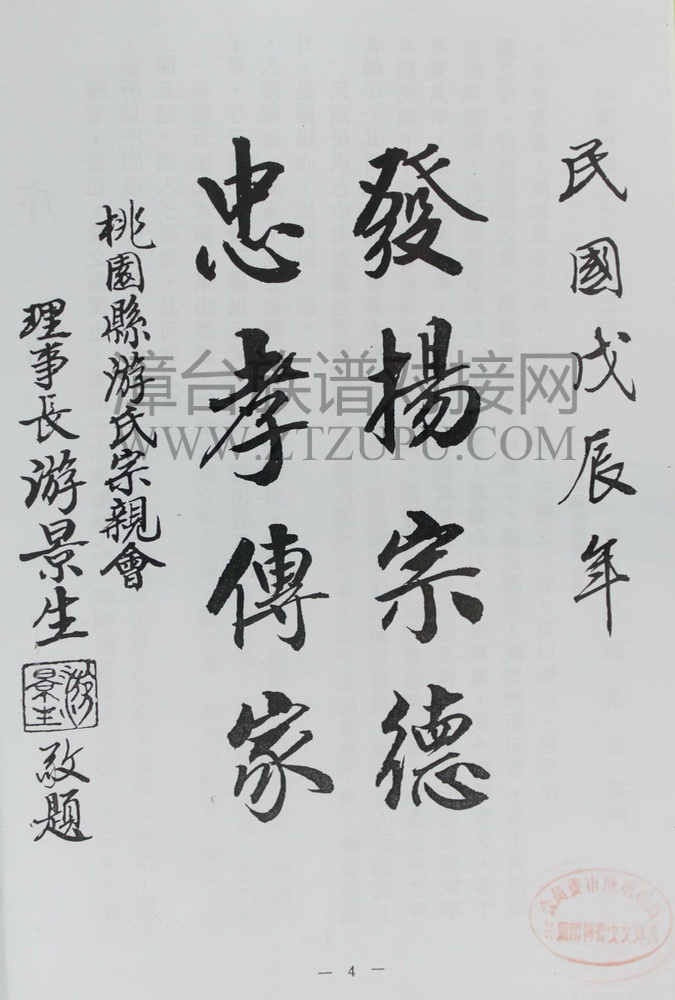 民國戊辰年
發揚宗德
忠孝傳家
桃園縣游氏宗親會
理事長游景生
游景生
敬題
漳台族谱对接网
WWW.ZTZUPU.COM
— 4 —